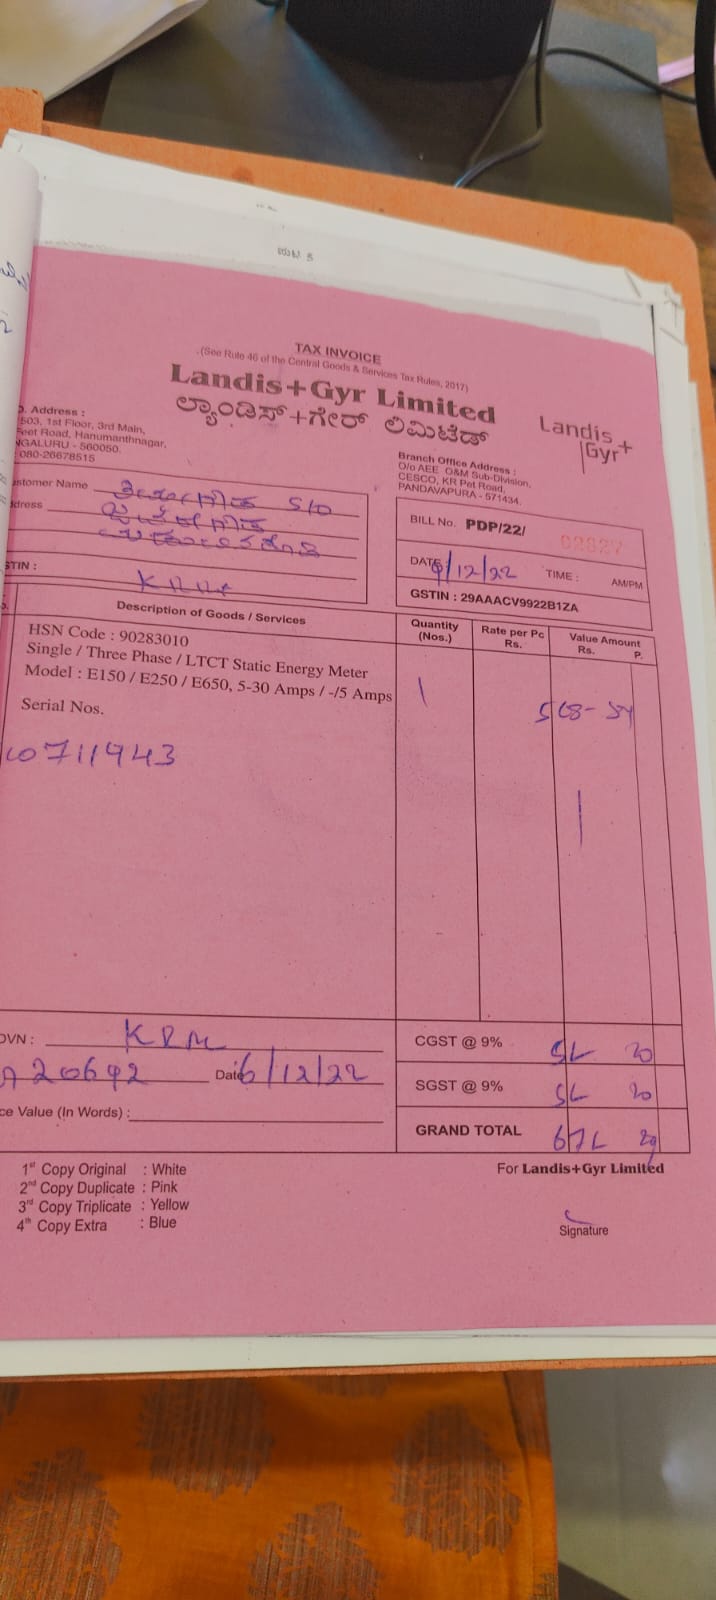 TAX INVOICE
(See Rule 46 of the Central Goods & Services Tax Rules, 2017)
Landis+Gyr Limited
ಲ್ಯಾಂಡಿಸ್+ಗೇರ್ ಲಿಮಿಟೆಡ್
Landis+
Gyr
. Address :
503, 1st Floor, 3rd Main,
eet Road, Hanumanthnagar,
NGALURU - 560050.
080-26678515
Branch Office Address :
O/o AEE O&M Sub-Division,
CESCO, KR Pet Road,
PANDAVAPURA - 571434.
ustomer Name S/O
dress
STIN :
BILL No. PDP/22/ 02827
DATE: 6/12/22 TIME : AM/PM
GSTIN : 29AAACV9922B1ZA
Description of Goods / Services
Quantity (Nos.)
Rate per Pc Rs.
Value Amount Rs. P.
HSN Code : 90283010
Single / Three Phase / LTCT Static Energy Meter
Model : E150 / E250 / E650, 5-30 Amps / -/5 Amps
1
Serial Nos.
0711943
OVN : KRM
20692 Date 6/12/22
ce Value (In Words) :
CGST @ 9% 20
SGST @ 9% 20
GRAND TOTAL
1st Copy Original : White
2nd Copy Duplicate : Pink
3rd Copy Triplicate : Yellow
4th Copy Extra : Blue
For Landis+Gyr Limited
Signature